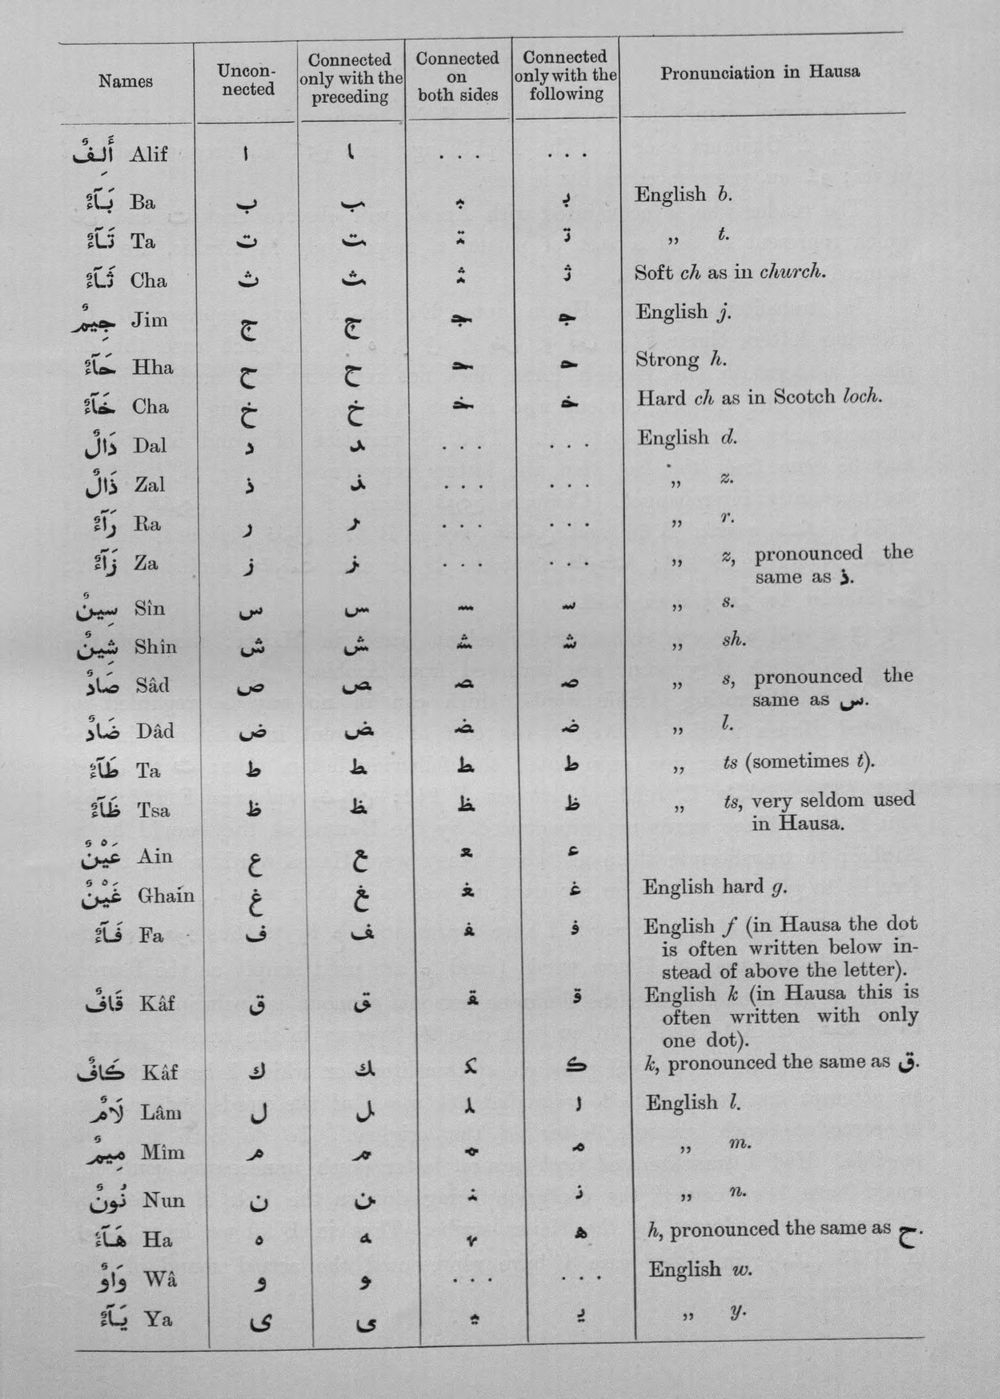 Names | Uncon-nected | Connected only with the preceding | Connected on both sides | Connected only with the following | Pronunciation in Hausa
أَلِفٌ Alif | ا | ـا | ... | ...
بَآءٌ Ba | ب | ـب | ـبـ | بـ | English b.
تَآءٌ Ta | ت | ـت | ـتـ | تـ | „ t.
ثَآءٌ Cha | ث | ـث | ـثـ | ثـ | Soft ch as in church.
جِيمٌ Jim | ج | ـج | ـجـ | جـ | English j.
حَآءٌ Hha | ح | ـح | ـحـ | حـ | Strong h.
خَآءٌ Cha | خ | ـخ | ـخـ | خـ | Hard ch as in Scotch loch.
دَالٌ Dal | د | ـد | ... | ... | English d.
ذَالٌ Zal | ذ | ـذ | ... | ... | „ z.
رَآءٌ Ra | ر | ـر | ... | ... | „ r.
زَآءٌ Za | ز | ـز | ... | ... | „ z, pronounced the
same as ذ.
سِينٌ Sîn | س | ـس | ـسـ | سـ | „ s.
شِينٌ Shîn | ش | ـش | ـشـ | شـ | „ sh.
صَادٌ Sâd | ص | ـص | ـصـ | صـ | „ s, pronounced the
same as س.
ضَادٌ Dâd | ض | ـض | ـضـ | ضـ | „ l.
طَآءٌ Ta | ط | ـط | ـطـ | طـ | „ ts (sometimes t).
ظَآءٌ Tsa | ظ | ـظ | ـظـ | ظـ | „ ts, very seldom used
in Hausa.
عَيْنٌ Ain | ع | ـع | ـعـ | عـ
غَيْنٌ Ghain | غ | ـغ | ـغـ | غـ | English hard g.
فَآءٌ Fa | ف | ـف | ـفـ | فـ | English f (in Hausa the dot
is often written below in-
stead of above the letter).
قَافٌ Kâf | ق | ـق | ـقـ | قـ | English k (in Hausa this is
often written with only
one dot).
كَافٌ Kâf | ك | ـك | ـكـ | كـ | k, pronounced the same as ق.
لَامٌ Lâm | ل | ـل | ـلـ | لـ | English l.
مِيمٌ Mîm | م | ـم | ـمـ | مـ | „ m.
نُونٌ Nun | ن | ـن | ـنـ | نـ | „ n.
هَآءٌ Ha | ه | ـه | ـهـ | هـ | h, pronounced the same as ح.
وَاوٌ Wâ | و | ـو | ... | ... | English w.
يَآءٌ Ya | ى | ـى | ـيـ | يـ | „ y.